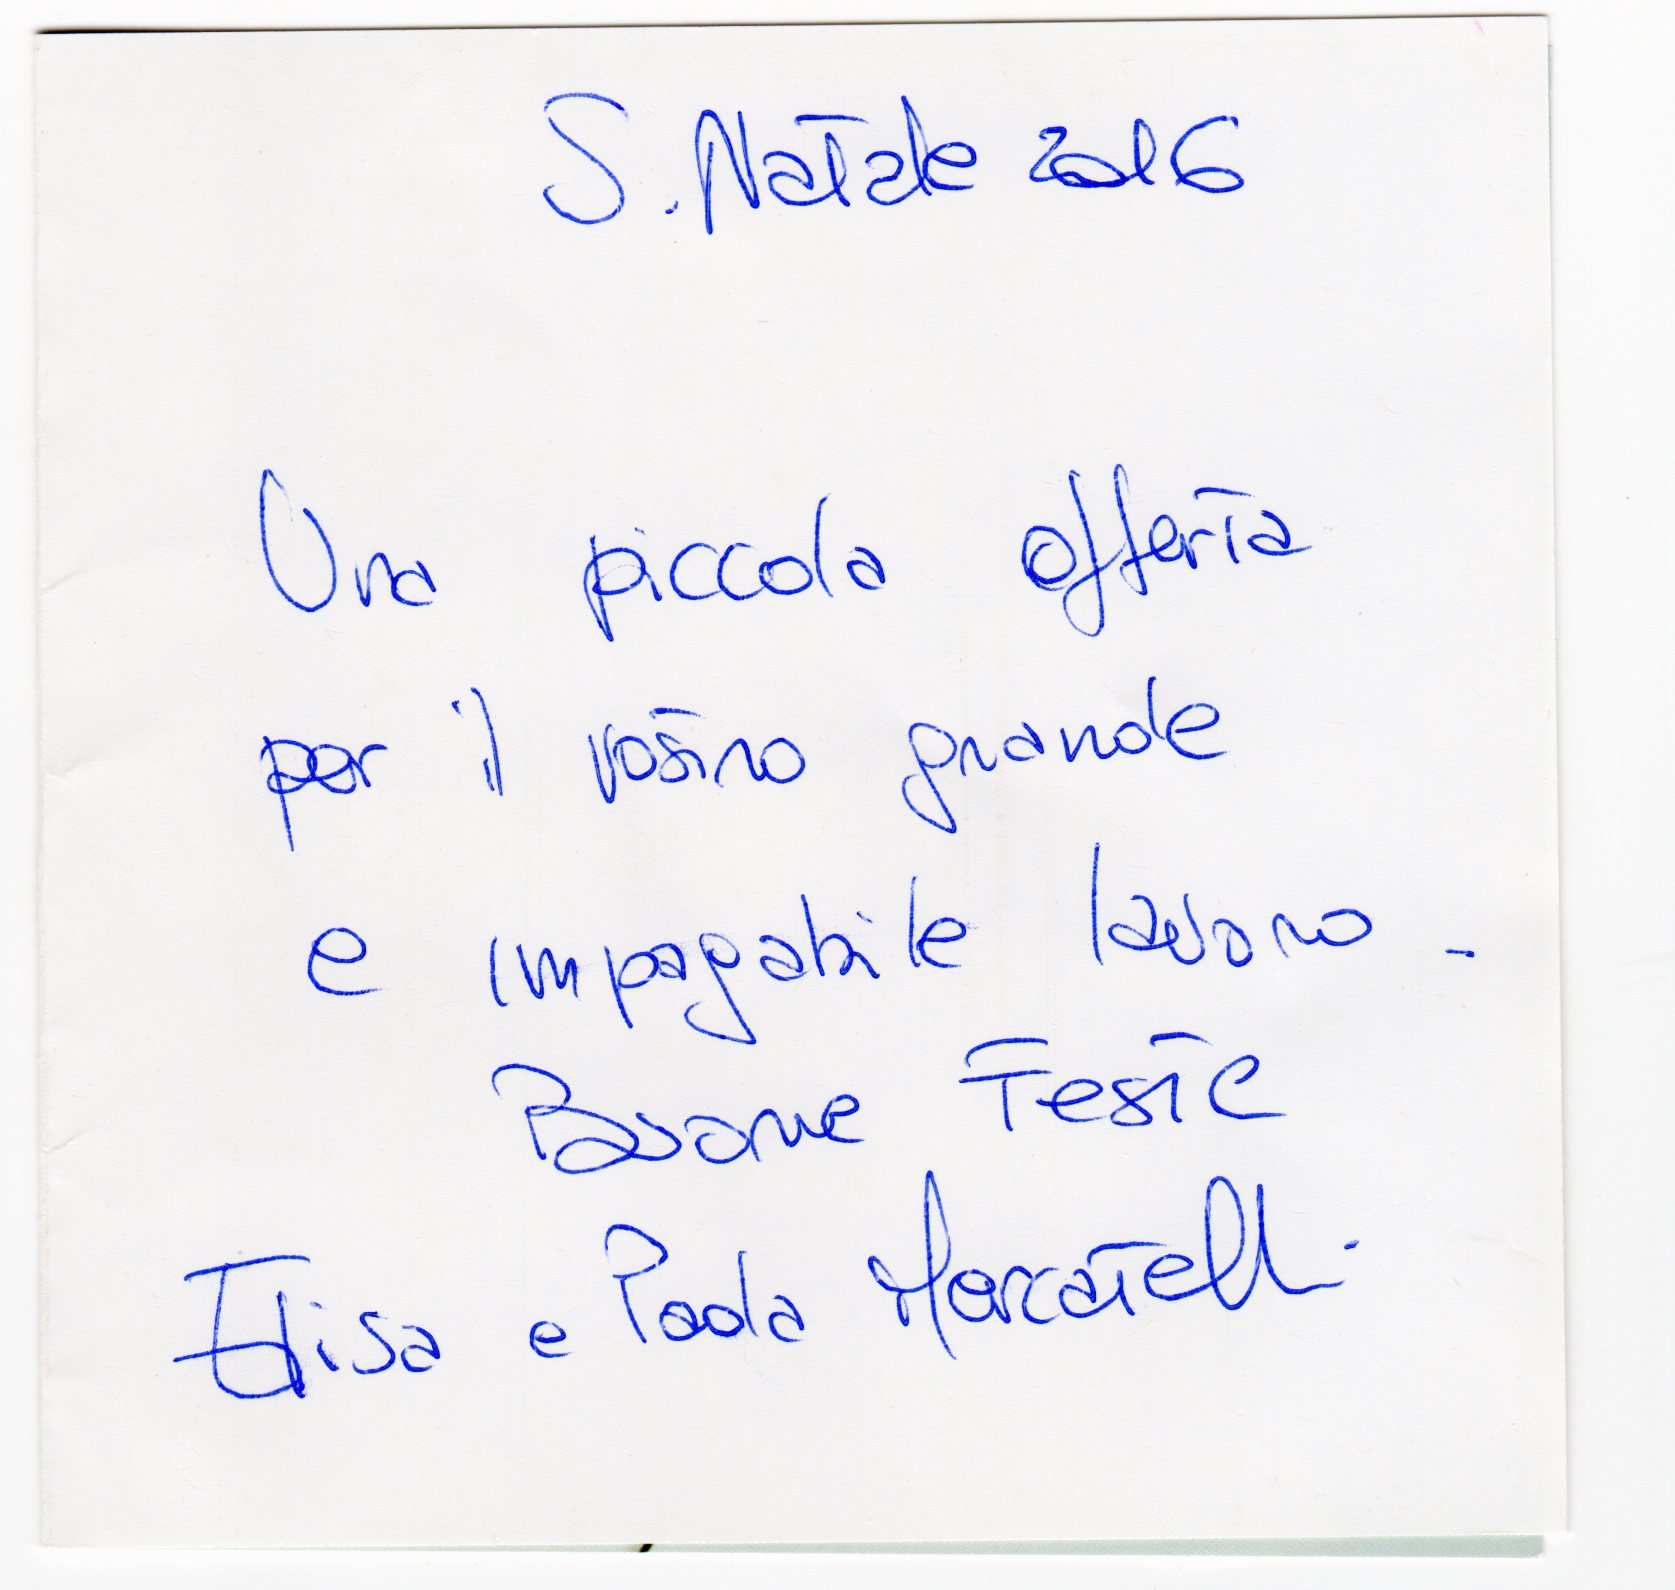 S. Natale 2016
Una piccola offerta
per il vostro grande
e impagabile lavoro -
Buone Feste
Elisa e Paola Mercatelli